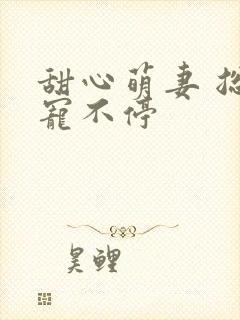 甜心萌妻
寵不停
昊鲤